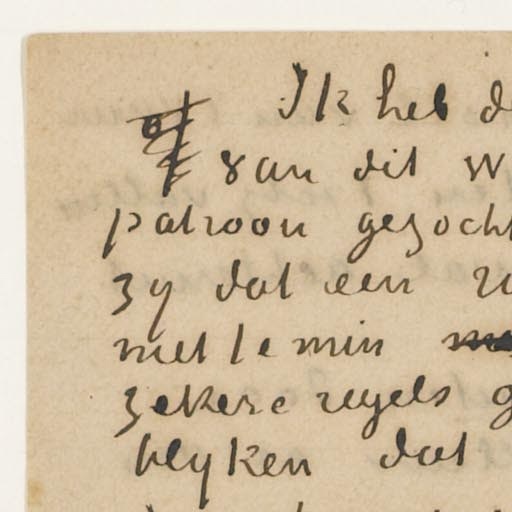 Ik heb d
van dit w
patroon gezocht
zy dat een
niettemin
zekere regels g
blyken dat